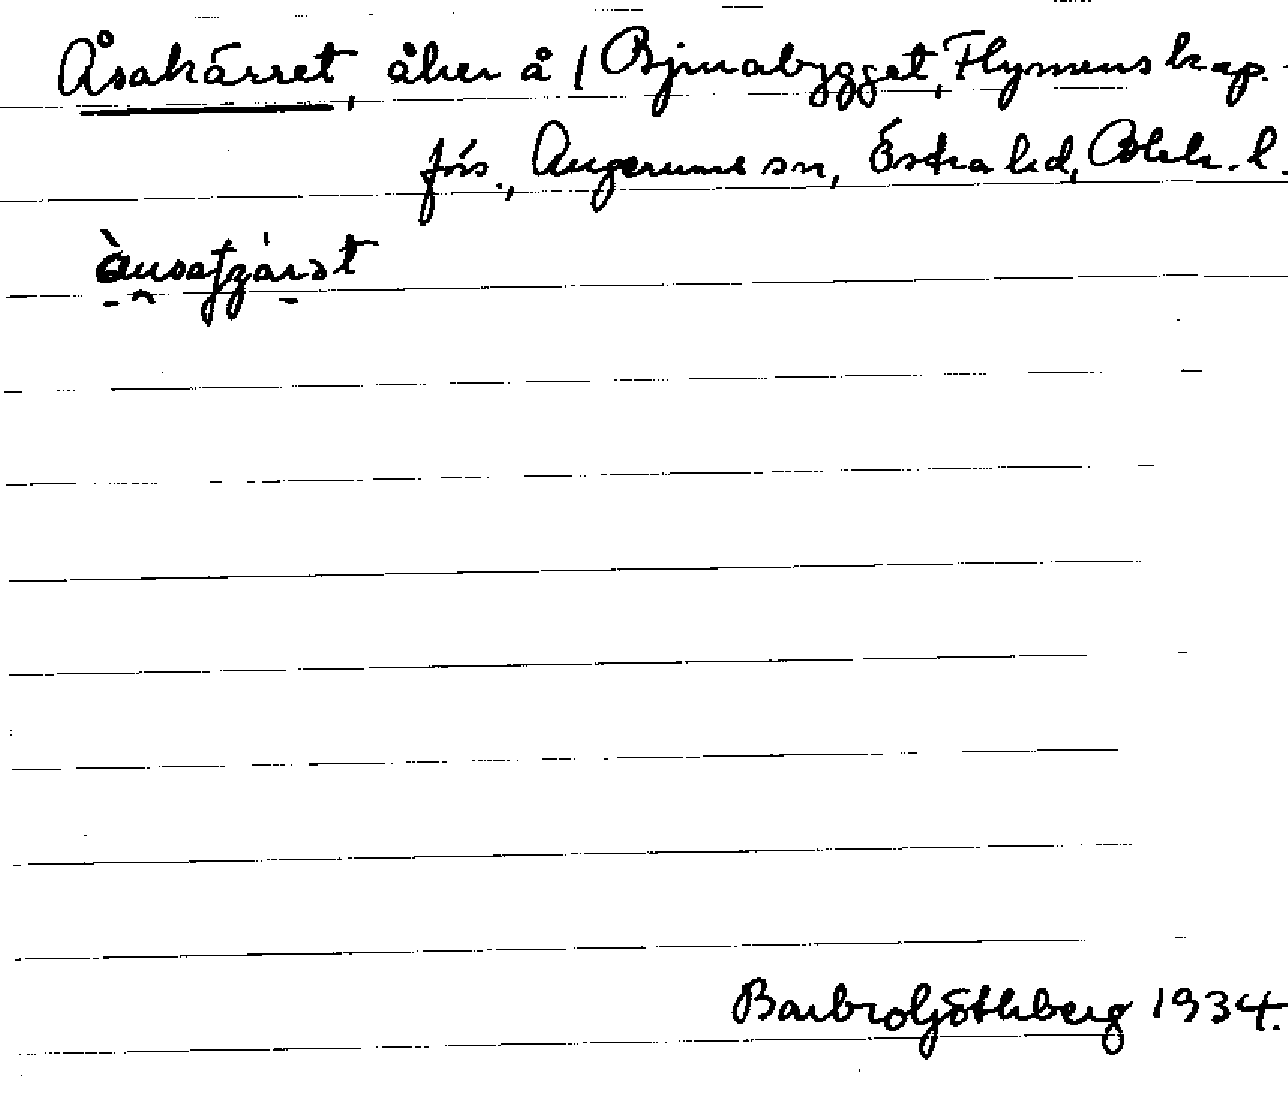 Åsakärret, åker å 1 Bjurabygget, Flymens kap.-
förs., Augerums sn, Östra hd, Blek. l.
Barbro Göthberg 1934.